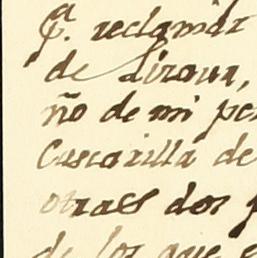 qª. reclamar
de Lizaur,
ño de mi per
Cascarilla de
otras dos
de los que e